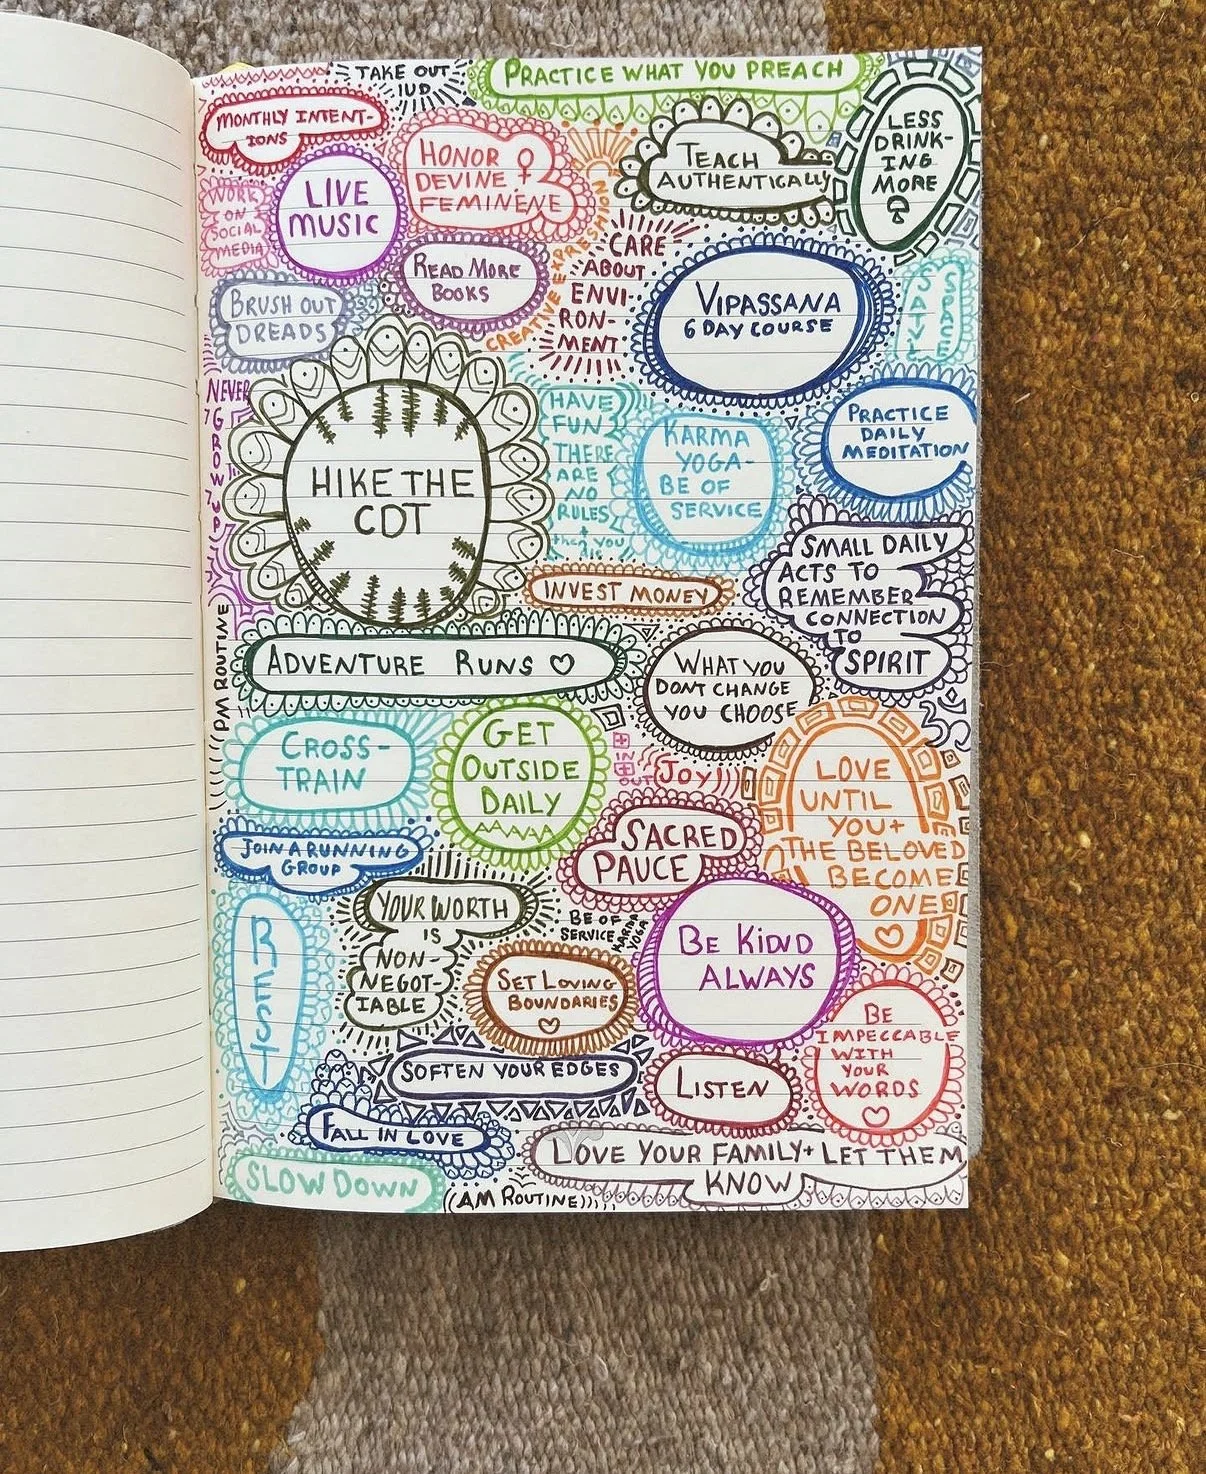 TAKE OUT
IUD
PRACTICE WHAT YOU PREACH
MONTHLY INTENT-
IONS
LESS
DRINK-
ING
MORE
HONOR ♀
DEVINE
FEMINENE
TEACH
AUTHENTICALLY
WORK
ON
SOCIAL
MEDIA
LIVE
MUSIC
CREATIVE EXPRESSION
CARE
ABOUT
ENVI-
RON-
MENT
READ MORE
BOOKS
BRUSH OUT
DREADS
VIPASSANA
6 DAY COURSE
SAVE
SPACE
NEVER
GROW
UP
HIKE THE
CDT
HAVE
FUN
THERE
ARE
NO
RULES
+
then you
die
KARMA
YOGA-
BE OF
SERVICE
PRACTICE
DAILY
MEDITATION
INVEST MONEY
SMALL DAILY
ACTS TO
REMEMBER
CONNECTION
TO
SPIRIT
PM ROUTINE
ADVENTURE RUNS ♡
WHAT YOU
DONT CHANGE
YOU CHOOSE
ॐ
CROSS-
TRAIN
GET
OUTSIDE
DAILY
IN
OUT
JOY!
LOVE
UNTIL
YOU +
THE BELOVED
BECOME
ONE
♡
SACRED
PAUCE
JOIN A RUNNING
GROUP
REST
YOUR WORTH
IS
NON-
NEGOT-
IABLE
BE OF
SERVICE
KARMA
YOGA
BE KIDND
ALWAYS
SET LOVING
BOUNDARIES
♡
BE
IMPECCABLE
WITH
YOUR
WORDS
♡
SOFTEN YOUR EDGES
LISTEN
FALL IN LOVE
LOVE YOUR FAMILY + LET THEM
KNOW
SLOW DOWN
((AM ROUTINE))